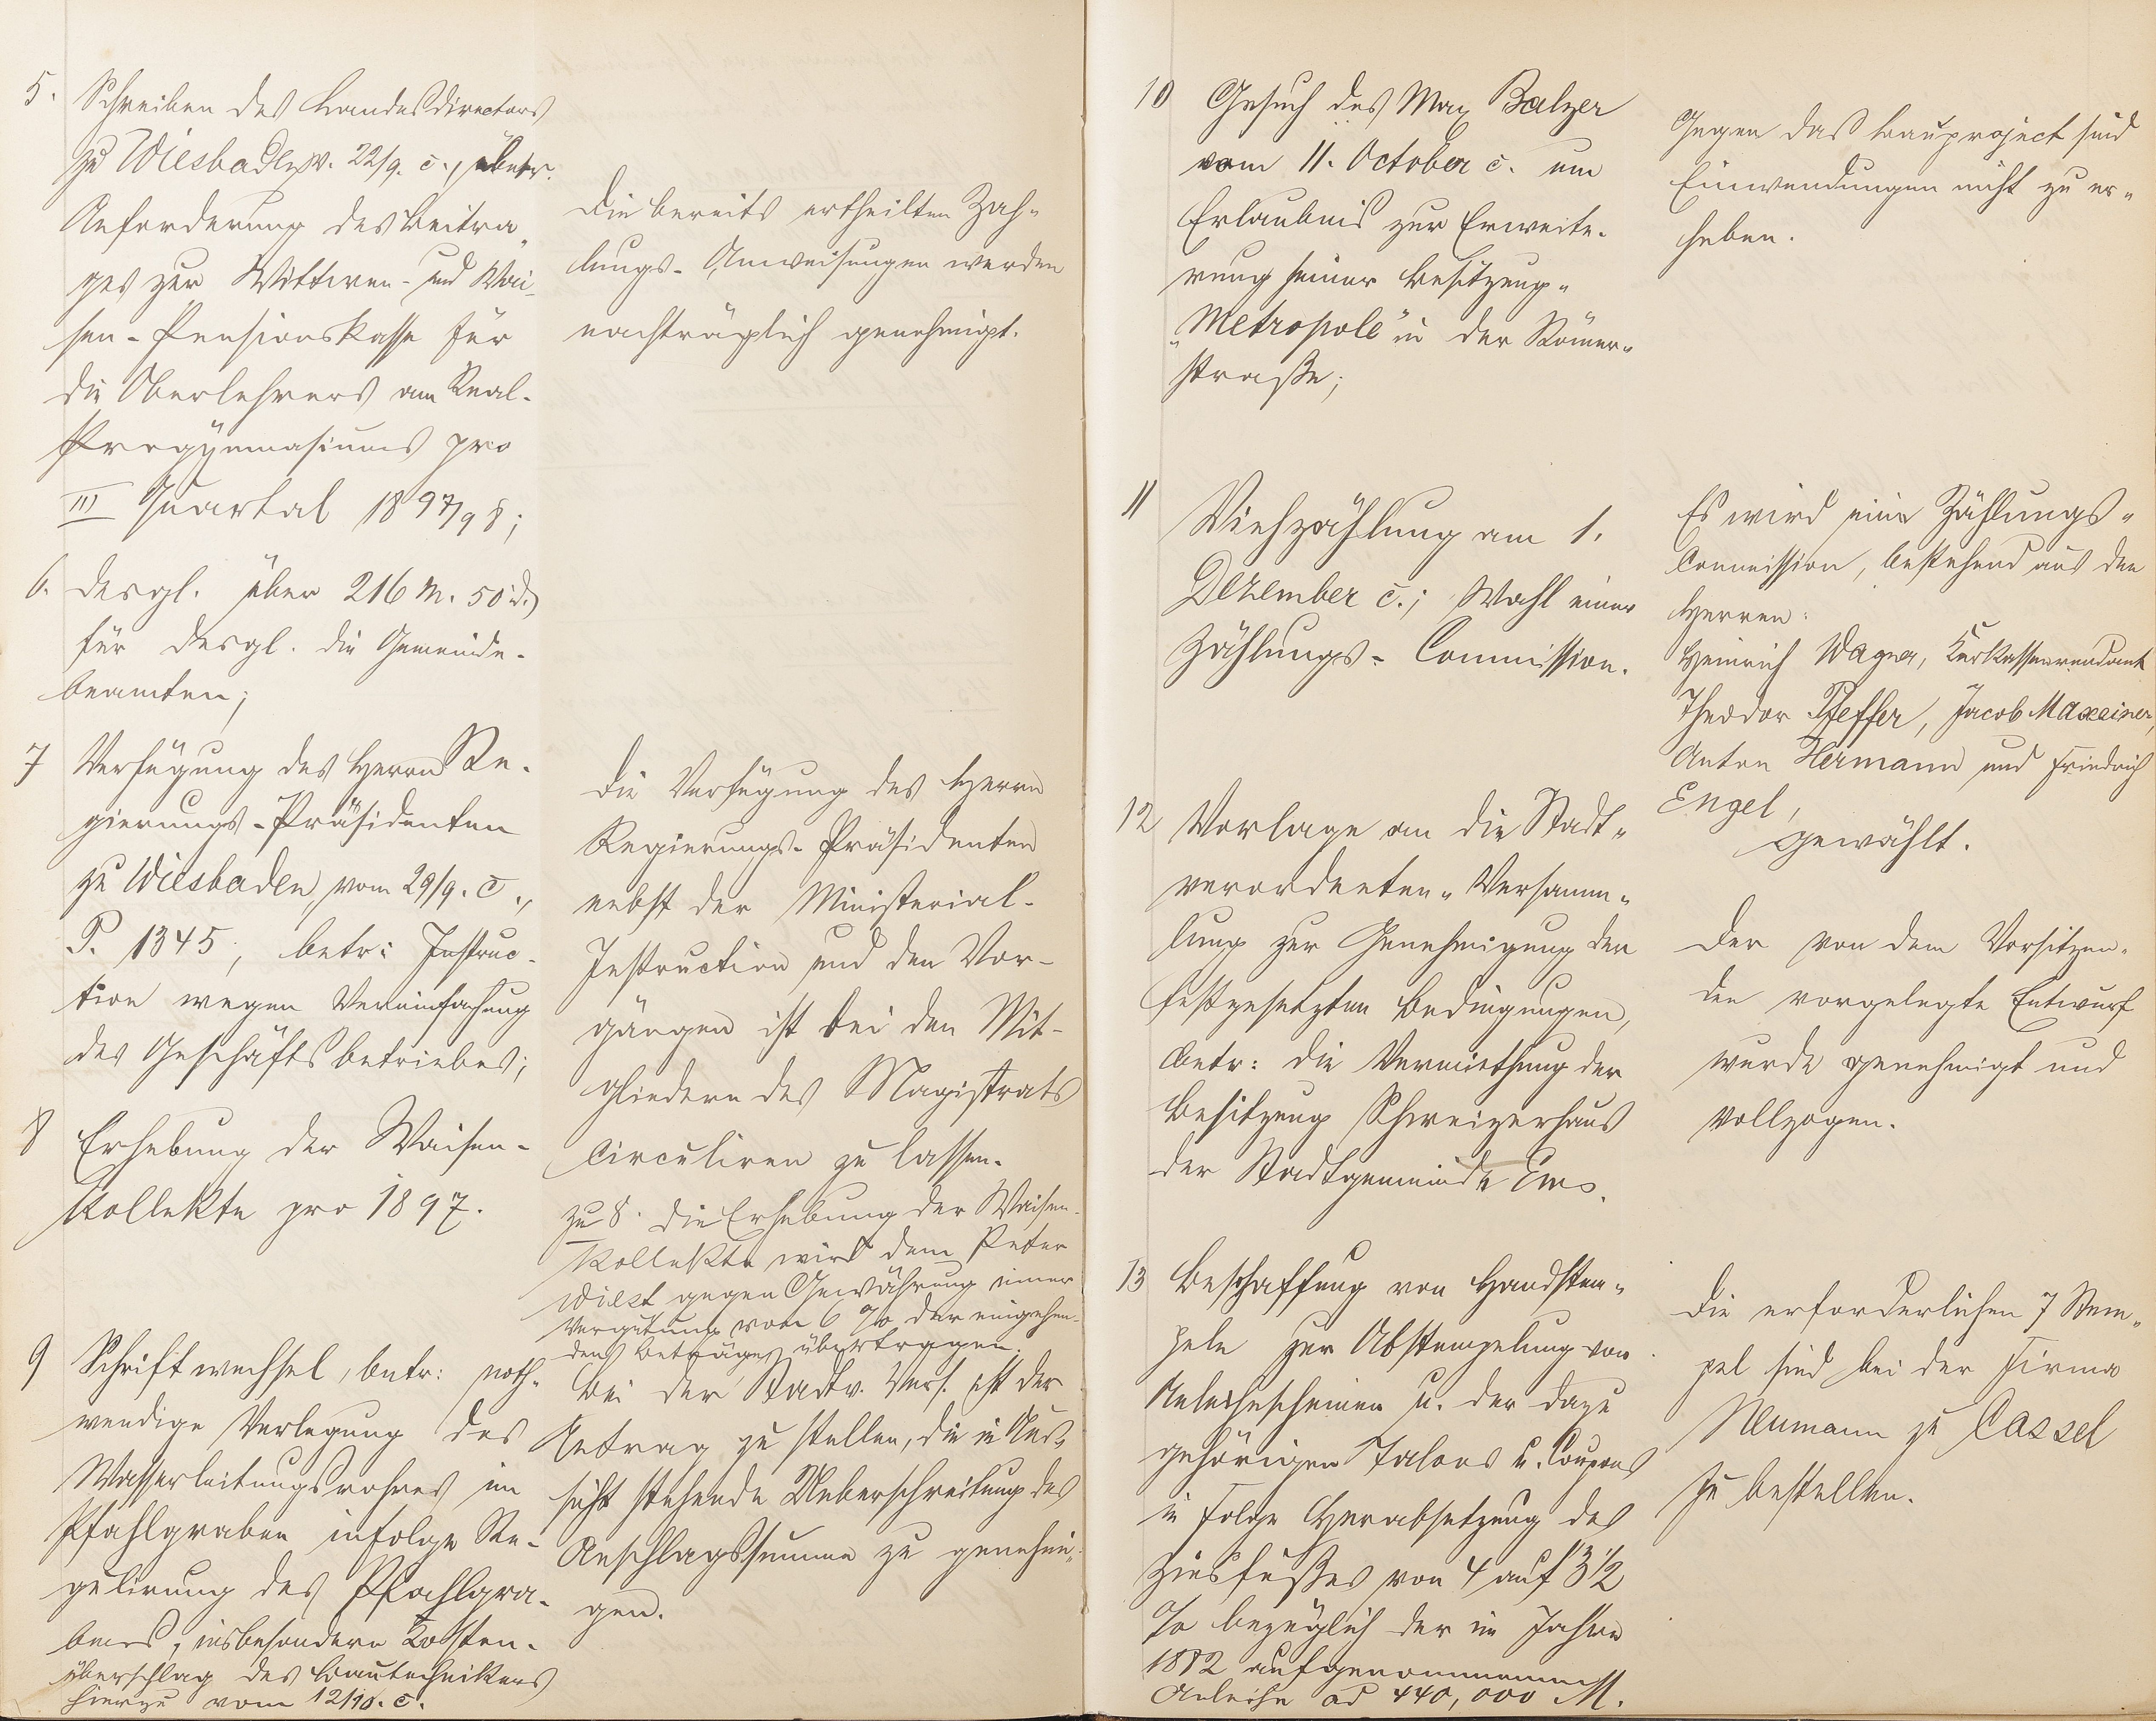 5. Schreiben des Landesdirectors
zu Wiesbaden v. 22/9. c., betr.
Anforderung des Beitra-
ges zur Wittwen- und Wai-
sen-Pensionskasse für
die Oberlehrers am Real-
Progymnasiums pro
III Quartal 1897/98;
6. desgl. über 216 M. 50 d.
für desgl. die Gemeinde-
beamten;
Die bereits ertheilten Zah-
lungs-Anweisungen werden
nachträglich genehmigt.
7 Verfügung des Herrn Re-
gierungs-Präsidenten
zu Wiesbaden, vom 29/9. c.,
P. 1345, betr: Instruc-
tion wegen Vereinfachung
des Geschäftsbetriebes;
Die Verfügung des Herrn
Regierungs-Präsidenten
nebst der Ministerial-
Instruction und den Vor-
gängen ist bei den Mit-
gliedern des Magistrats
circuliren zu lassen.
8 Erhebung der Waisen-
Kollekte pro 1897.
zu 8. Die Erhebung der Waisen-
kollekte wird dem Peter
Wiest gegen Gewährung einer
Vergütung von 6 % der eingehen-
den Beträge übertragen.
9 Schriftwechsel, betr: noth-
wendige Verlegung des
Wasserleitungsrohres im
Pfahlgraben infolge Re-
gulirung des Pfahlgra-
bens, insbesondere Kosten-
überschlag des Bautechnikers
hierzu vom 12/10. c.
Bei der Stadtv. Vers. ist der
Antrag zu stellen, die in Aus-
sicht stehende Ueberschreitung des
Anschlagssumme zu genehmi-
gen.
10 Gesuch des Max Balzer
vom 11. October c. um
Erlaubnis zur Erweite-
rung seiner Besitzung-
"Metropole" in der Römer-
straße;
Gegen das Bauproject sind
Einwendungen nicht zu er-
heben.
11 Viehzählung am 1.
Dezember c.; Wahl einer
Zählungs-Commission.
Es wird eine Zählungs-
Commission, bestehend aus den
Herren:
Heinrich Wagner, Kurkassenrendant
Theodor Pfeffer, Jacob Maxeiner,
Anton Hermann und Friedrich
Engel,
gewählt.
12 Vorlage an die Stadt-
verordneten-Versamm-
lung zur Genehmigung der
festgesetzten Bedingungen,
betr: die Vermiethung der
Besitzung Schweizerhaus
der Stadtgemeinde Ems.
Der von dem Vorsitzen-
den vorgelegte Entwurf
wurde genehmigt und
vollzogen.
13 Beschaffung von Handstem-
peln zur Abstempelung von
Anleihescheinen u. der dazu
gehörigen Talons u. Coupons
in Folge Herabsetzung des
Zinsfußes von 4 auf 3 1/2
% bezüglich der im Jahre
1882 aufgenommenen
Anleihe ad 440,000 M.
Die erforderlichen 7 Stem-
pel sind bei der Firma
Neumann zu Cassel
zu bestellen.